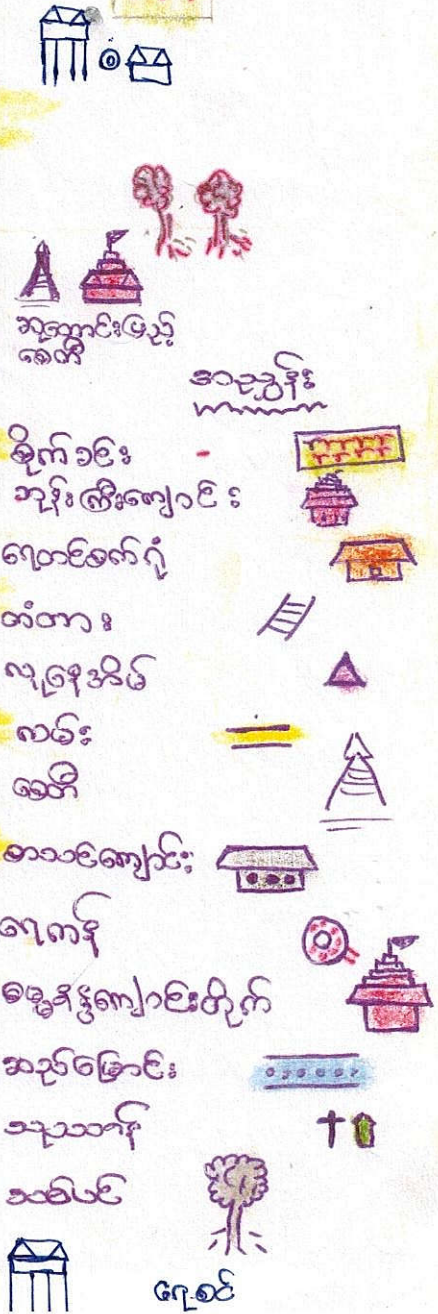 ဆုတောင်းပြည့်
စေတီ
အညွှန်း
စိုက်ခင်း
ဘုန်းကြီးကျောင်း
ရေတင်စက်ရုံ
တံတား
လူနေအိမ်
လမ်း
စေတီ
စာသင်ကျောင်း
ရေကန်
ဓမ္မနန္ဒကျောင်းတိုက်
ဆည်မြောင်း
သုသာန်
သစ်ပင်
ရေစင်